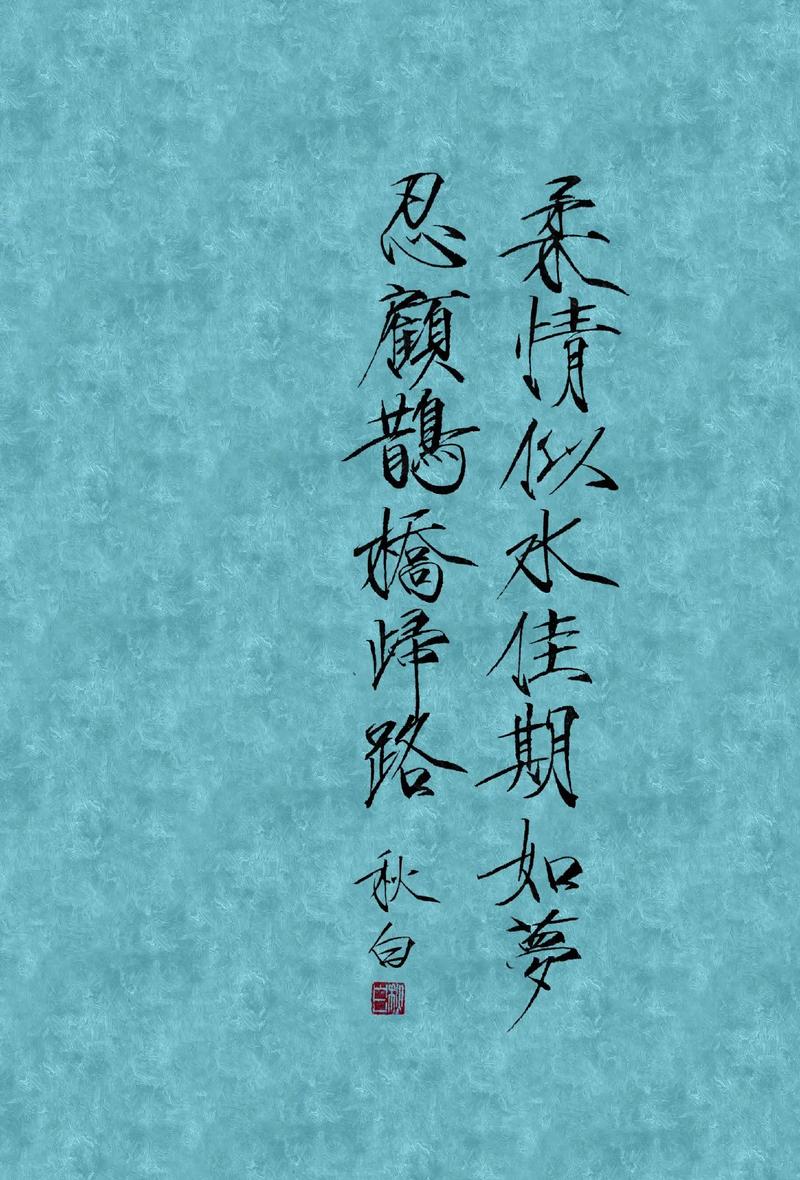 柔情似水佳期如夢
忍顧鵲橋歸路
秋白
秋白